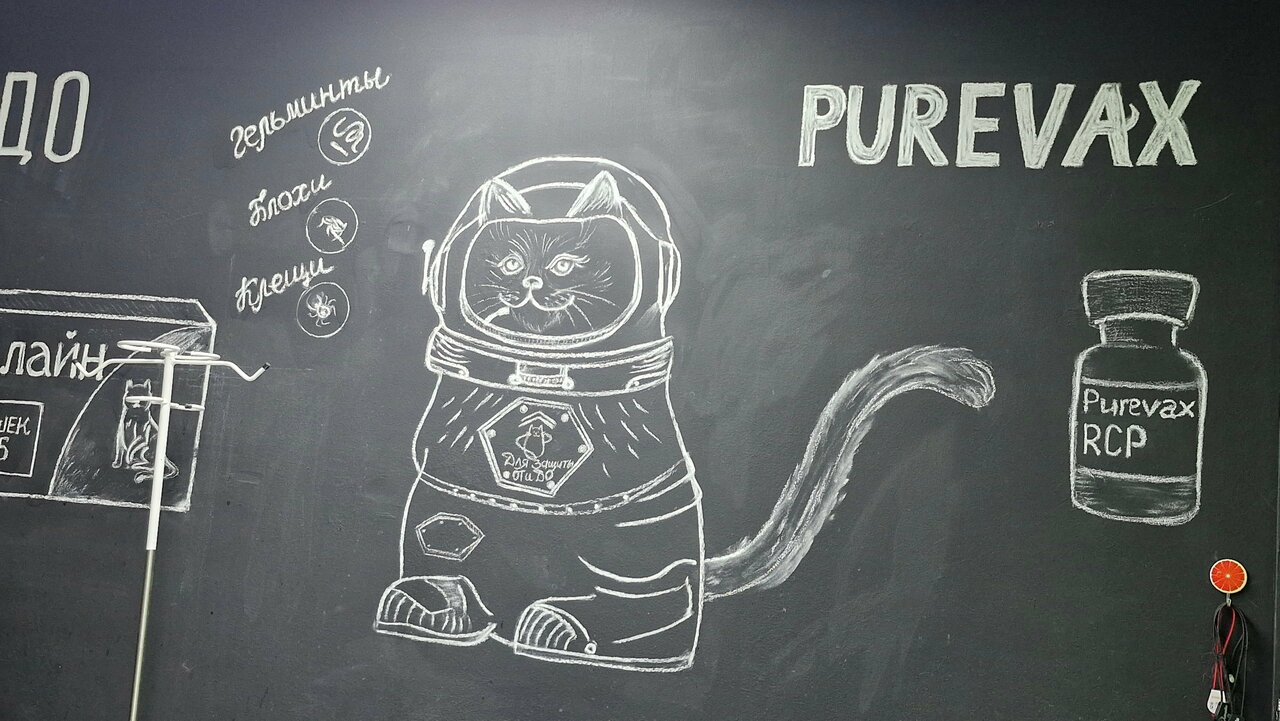 ДО
Гельминты
Блохи
Клещи
лайн
ШЕК
5
Для защиты
от и до
PUREVAX
Purevax
RCP